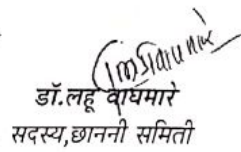 डॉ.लहू वाघमारे
सदस्य,छाननी समिती